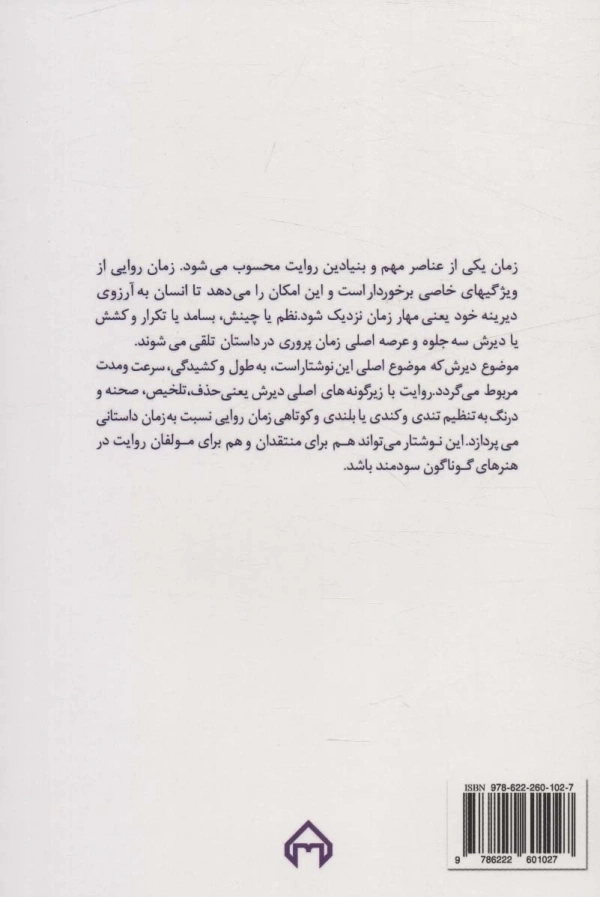 زمان یکی از عناصر مهم و بنیادین روایت محسوب می شود. زمان روایی از
ویژگیهای خاصی برخوردار است و این امکان را می‌دهد تا انسان به آرزوی
دیرینه خود یعنی مهار زمان نزدیک شود.نظم یا چینش، بسامد یا تکرار و کشش
یا دیرش سه جلوه و عرصه اصلی زمان پروری در داستان تلقی می شوند.
موضوع دیرش که موضوع اصلی این نوشتار است، به طول و کشیدگی، سرعت ومدت
مربوط می‌گردد.روایت با زیرگونه های اصلی دیرش یعنی حذف،تلخیص، صحنه و
درنگ به تنظیم تندی و کندی یا بلندی و کوتاهی زمان روایی نسبت به زمان داستانی
می پردازد. این نوشتار می‌تواند هم برای منتقدان و هم برای مولفان روایت در
هنرهای گوناگون سودمند باشد.
ISBN 978-622-260-102-7
9 786222 601027